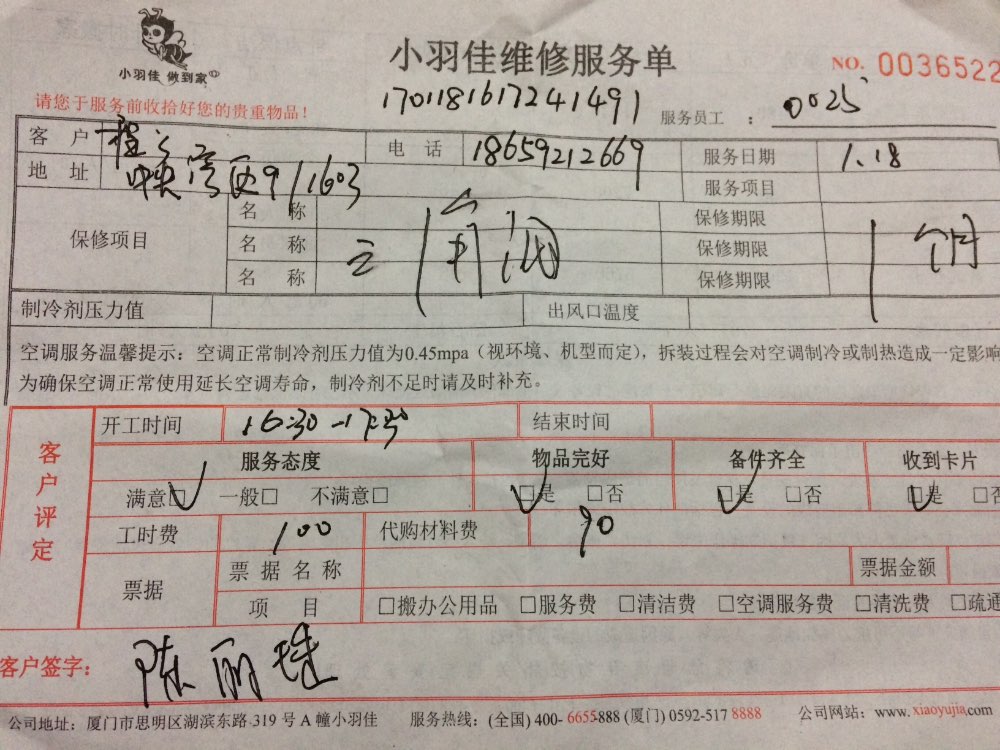 小羽佳 做到家
小羽佳维修服务单
NO. 0036522
请您于服务前收拾好您的贵重物品！
1701181617241491
服务员工 ： 0025
客 户 程
电 话 18659212669
服务日期 1.18
地 址 中央湾区9/1603
服务项目
保修项目
名 称
保修期限
名 称
保修期限 1个月
名 称
保修期限
制冷剂压力值
出风口温度
空调服务温馨提示：空调正常制冷剂压力值为0.45mpa（视环境、机型而定），拆装过程会对空调制冷或制热造成一定影响
为确保空调正常使用延长空调寿命，制冷剂不足时请及时补充。
客户评定
开工时间 16:30-17:30
结束时间
服务态度 物品完好 备件齐全 收到卡片
满意□ 一般□ 不满意□ □是 □否 □是 □否 □是 □否
工时费 100 代购材料费 90
票据
票 据 名 称
票据金额
项 目 □搬办公用品 □服务费 □清洁费 □空调服务费 □清洗费 □疏通
客户签字： 陈丽
公司地址：厦门市思明区湖滨东路 319 号 A 幢小羽佳 服务热线：(全国) 400- 6655-888 (厦门) 0592-517 8888 公司网站：www.xiaoyujia.com